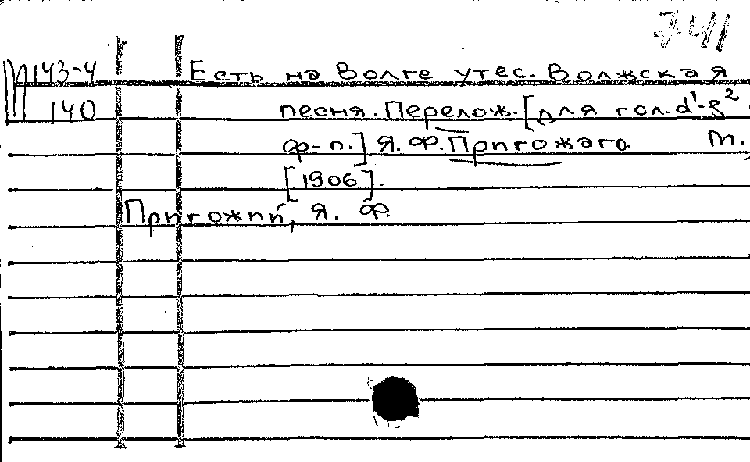 741
М143-4 Есть на Волге утес. Волжская
140 песня. Перелож. [для гол. d¹-g²
ф-п.] Я. Ф. Пригожаго М.,
[1906].
Пригожий, Я. Ф.